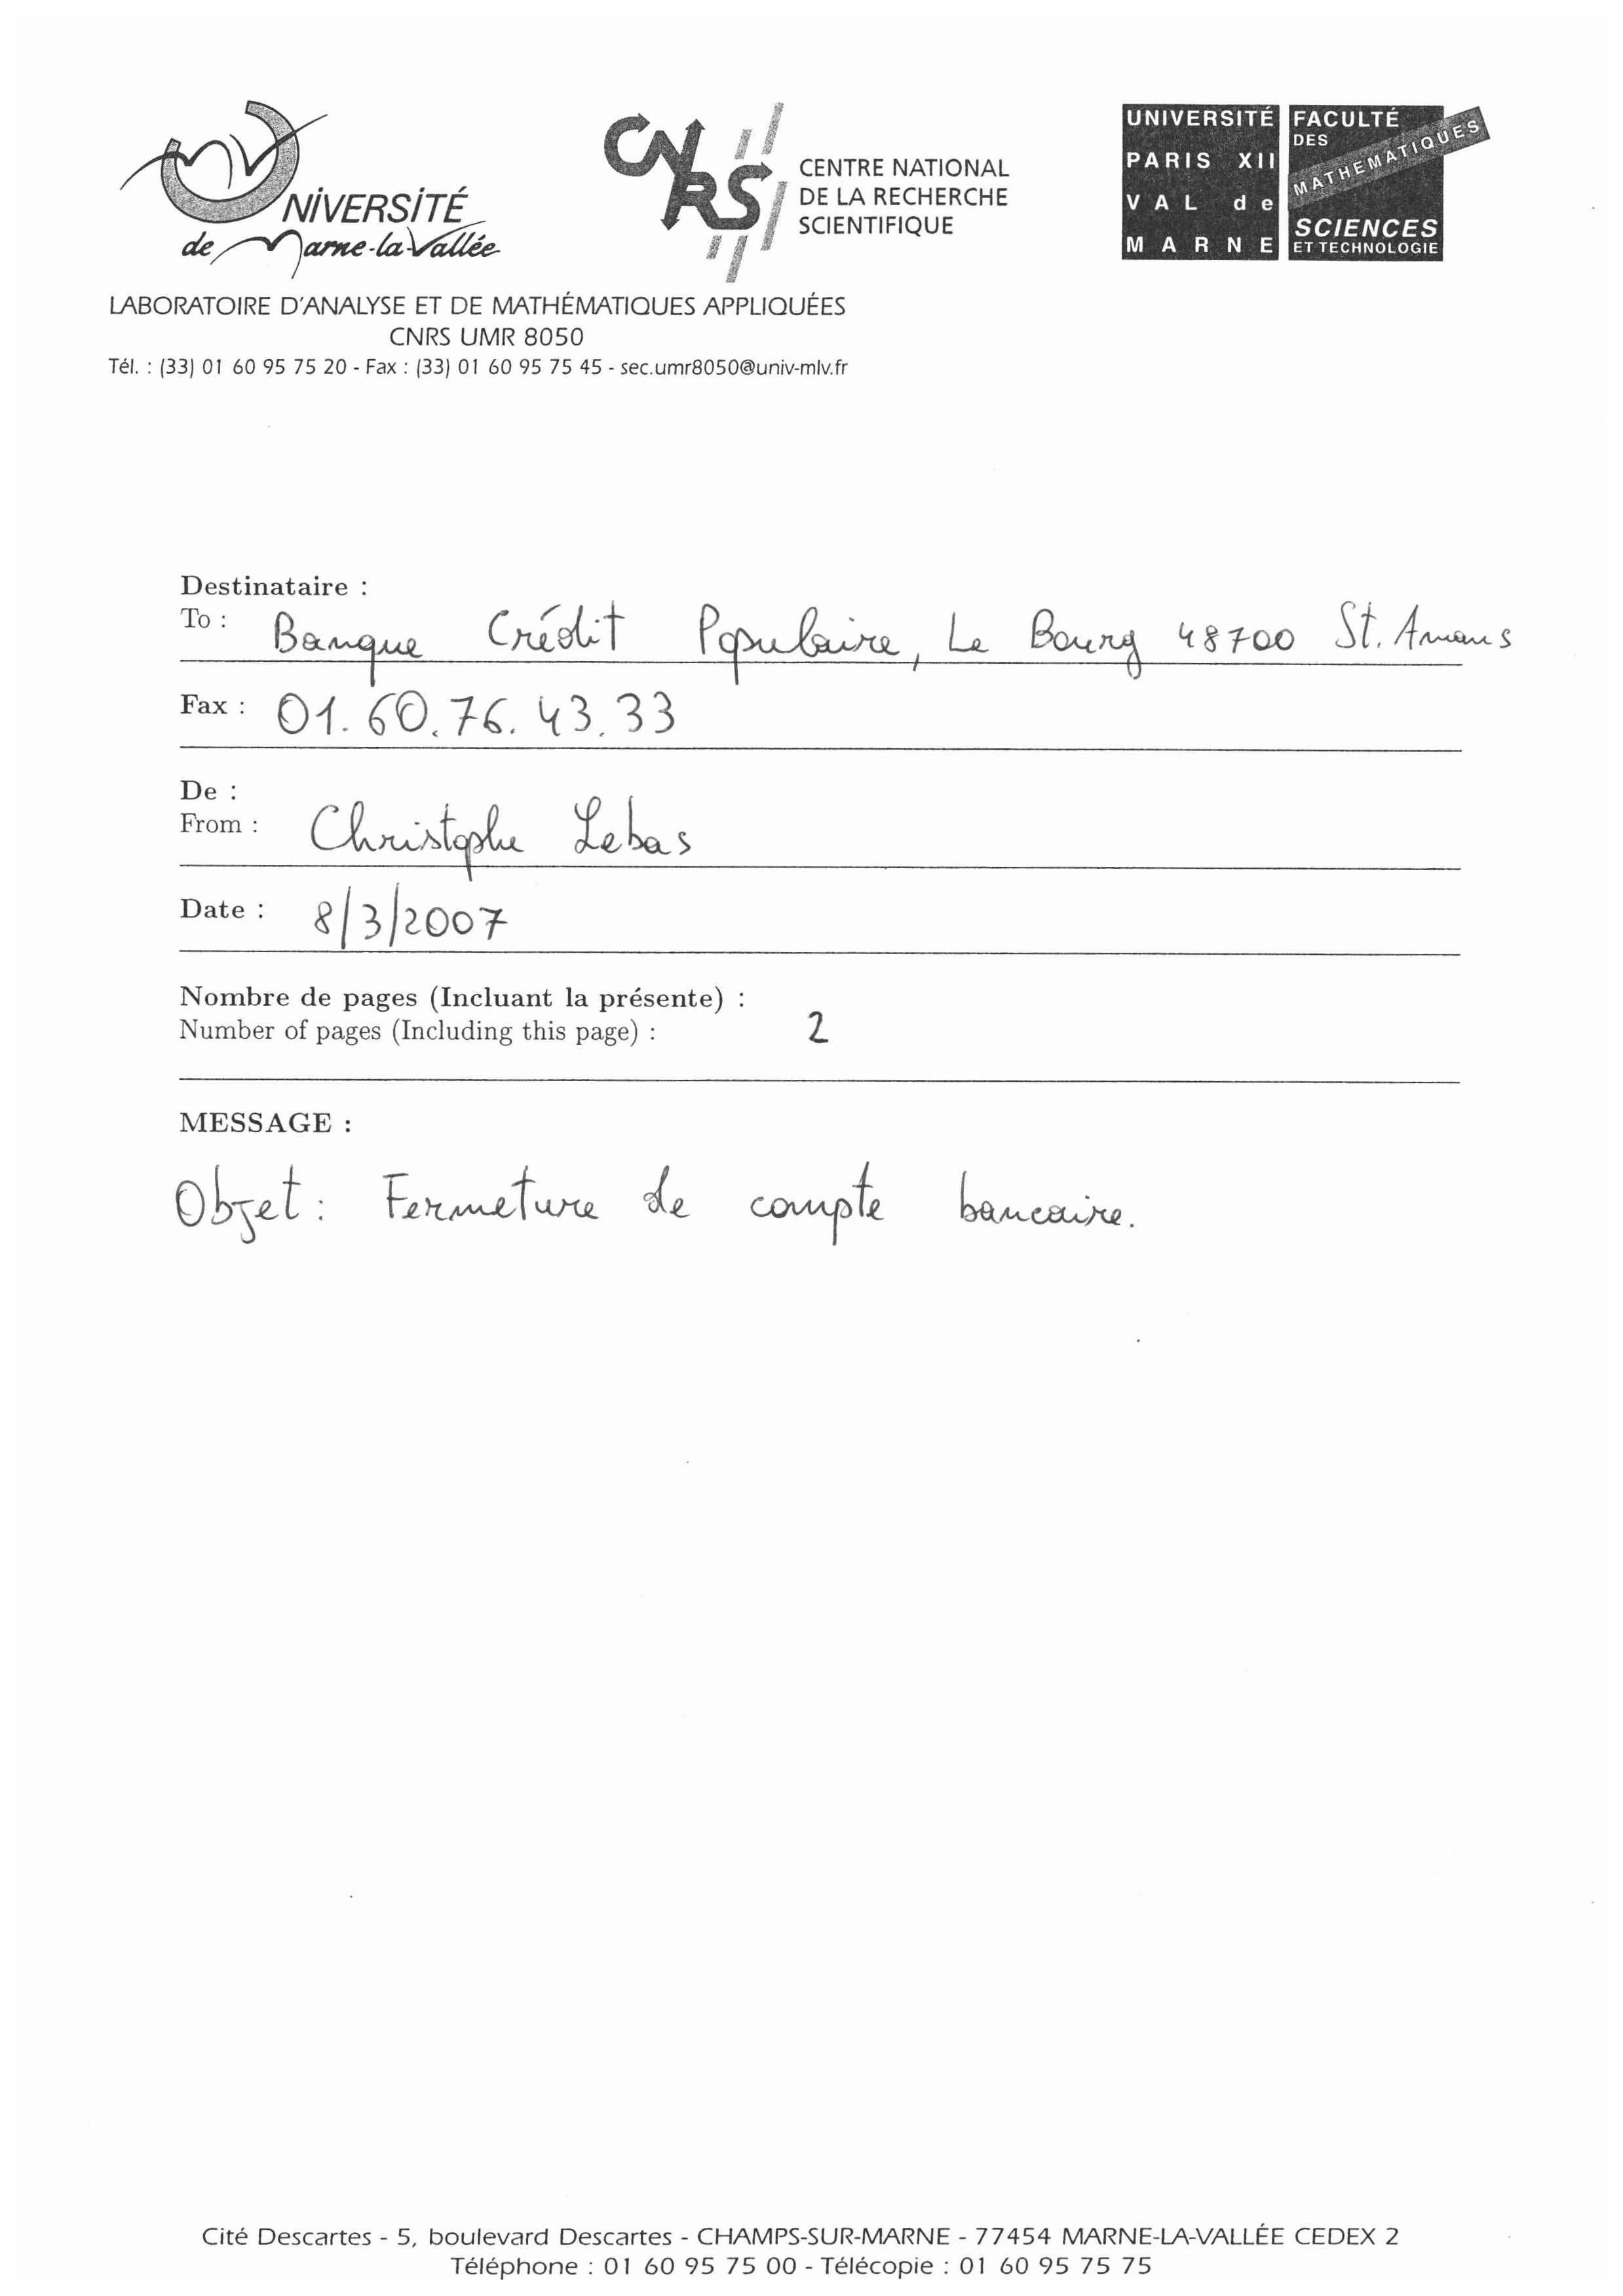 UNIVERSITÉ
de Marne-la-Vallée
CNRS
CENTRE NATIONAL
DE LA RECHERCHE
SCIENTIFIQUE
UNIVERSITÉ
PARIS XII
VAL de
MARNE
FACULTÉ
DES
MATHEMATIQUES
SCIENCES
ET TECHNOLOGIE
LABORATOIRE D'ANALYSE ET DE MATHÉMATIQUES APPLIQUÉES
CNRS UMR 8050
Tél. : (33) 01 60 95 75 20 - Fax : (33) 01 60 95 75 45 - sec.umr8050@univ-mlv.fr
Destinataire :
To : Banque Crédit Populaire, Le Bourg 48700 St. Amans
Fax : 01.60.76.43.33
De :
From : Christophe Lebas
Date : 8/3/2007
Nombre de pages (Incluant la présente) :
Number of pages (Including this page) : 2
MESSAGE :
Objet : Fermeture de compte bancaire.
Cité Descartes - 5, boulevard Descartes - CHAMPS-SUR-MARNE - 77454 MARNE-LA-VALLÉE CEDEX 2
Téléphone : 01 60 95 75 00 - Télécopie : 01 60 95 75 75